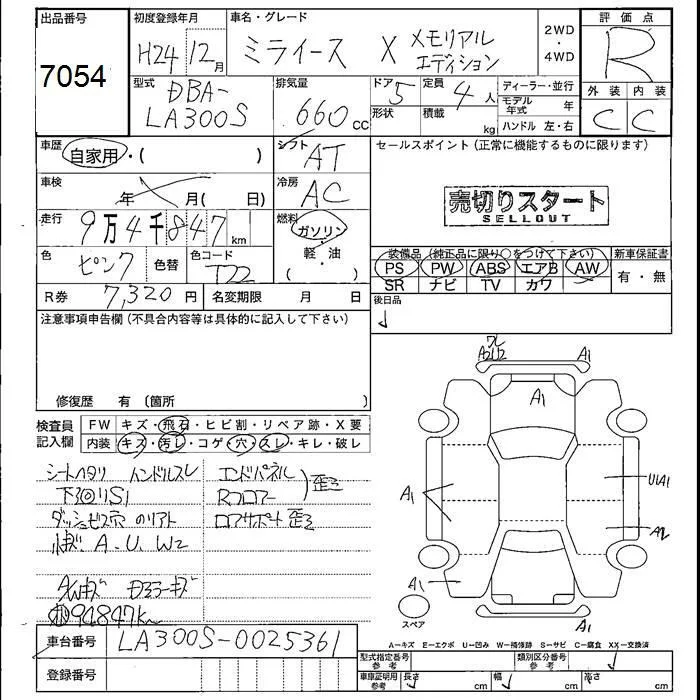 出品番号 初度登録年月 車名・グレード 2WD・4WD 評価点
7054 H24 12月 ミライース X メモリアル エディション R
型式 排気量 ドア 定員 ディーラー・並行 外装 内装
DBA- LA300S 660cc 5 4人 モデル年式 年 C C
形状 積載 kg ハンドル 左・右
車歴 シフト セールスポイント(正常に機能するものに限ります)
自家用・( ) AT
車検 年 月( 日) 冷房 AC
売切りスタート
SELLOUT
走行 9万4千847km 燃料 ガソリン・軽・油 ( )
装備品(純正品に限り○をつけて下さい) 新車保証書
色 ピンク 色替 色コード T22
PS PW ABS エアB AW 有・無
SR ナビ TV カワ
R券 7,320円 名変期限 月 日
後日品
注意事項申告欄(不具合内容等は具体的に記入して下さい)
修復歴 有 〔箇所
検査員記入欄 FW キズ・飛石・ヒビ割・リペア跡・X要
内装 キズ・汚レ・コゲ・穴・スレ・キレ・破レ
シートヘタリ ハンドルスレ エンドパネル
下回りS1 Rフロアー 歪
ダッシュビス穴 のリアト ロアサポート歪
小キズ A.U.W2
94847km
ワレ
A2U2 A1
A1
A1 U1A1
A2
A1
スペア
A1
A-キズ E-エクボ U-凹み W-補修跡 S-サビ C-腐食 XX-交換済
車台番号 LA300S-0025361
型式指定番号 参考 類別区分番号 参考
登録番号 車車証明用 参考 長さ cm 幅 cm 高さ cm